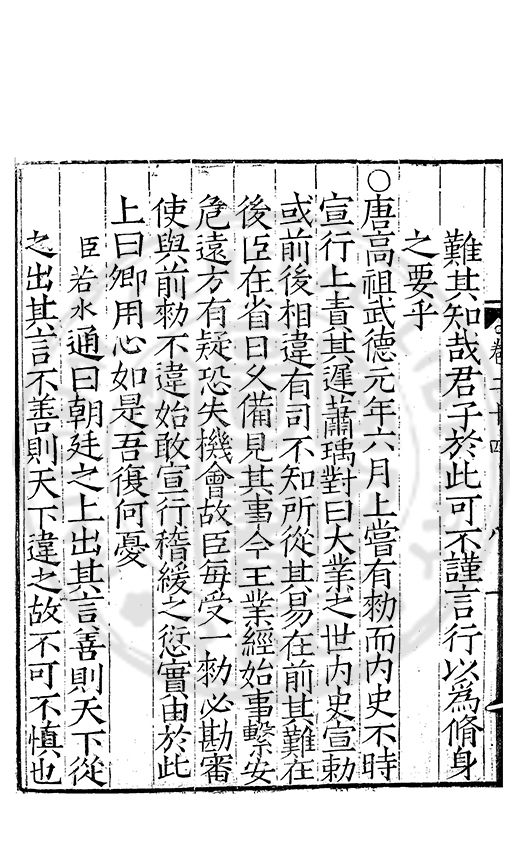 難其知哉君子於此可不謹言行以為脩身
之要乎
○唐高祖武德元年六月上嘗有勑而内史不時
宣行上責其遲蕭瑀對曰大業之世内史宣勑
或前後相違有司不知所從其易在前其難在
後臣在省日久備見其事今王業經始事繫安
危遠方有疑恐失機會故臣每受一勑必勘審
使與前勑不違始敢宣行稽緩之愆實由於此
上曰卿用心如是吾復何憂
臣若水通曰朝廷之上出其言善則天下從
之出其言不善則天下違之故不可不慎也
卷二十四
八